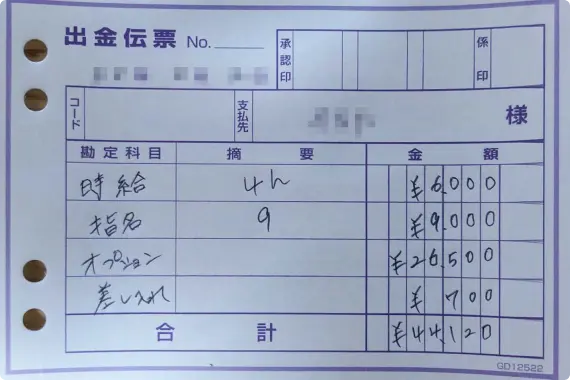 出金伝票 No.
承認印 係印
コード 支払先 様
勘定科目 摘要 金額
時給 4h ¥6,000
指名 9 ¥9,000
オプション ¥26,500
差し入れ ¥700
合計 ¥44,120
GD12522